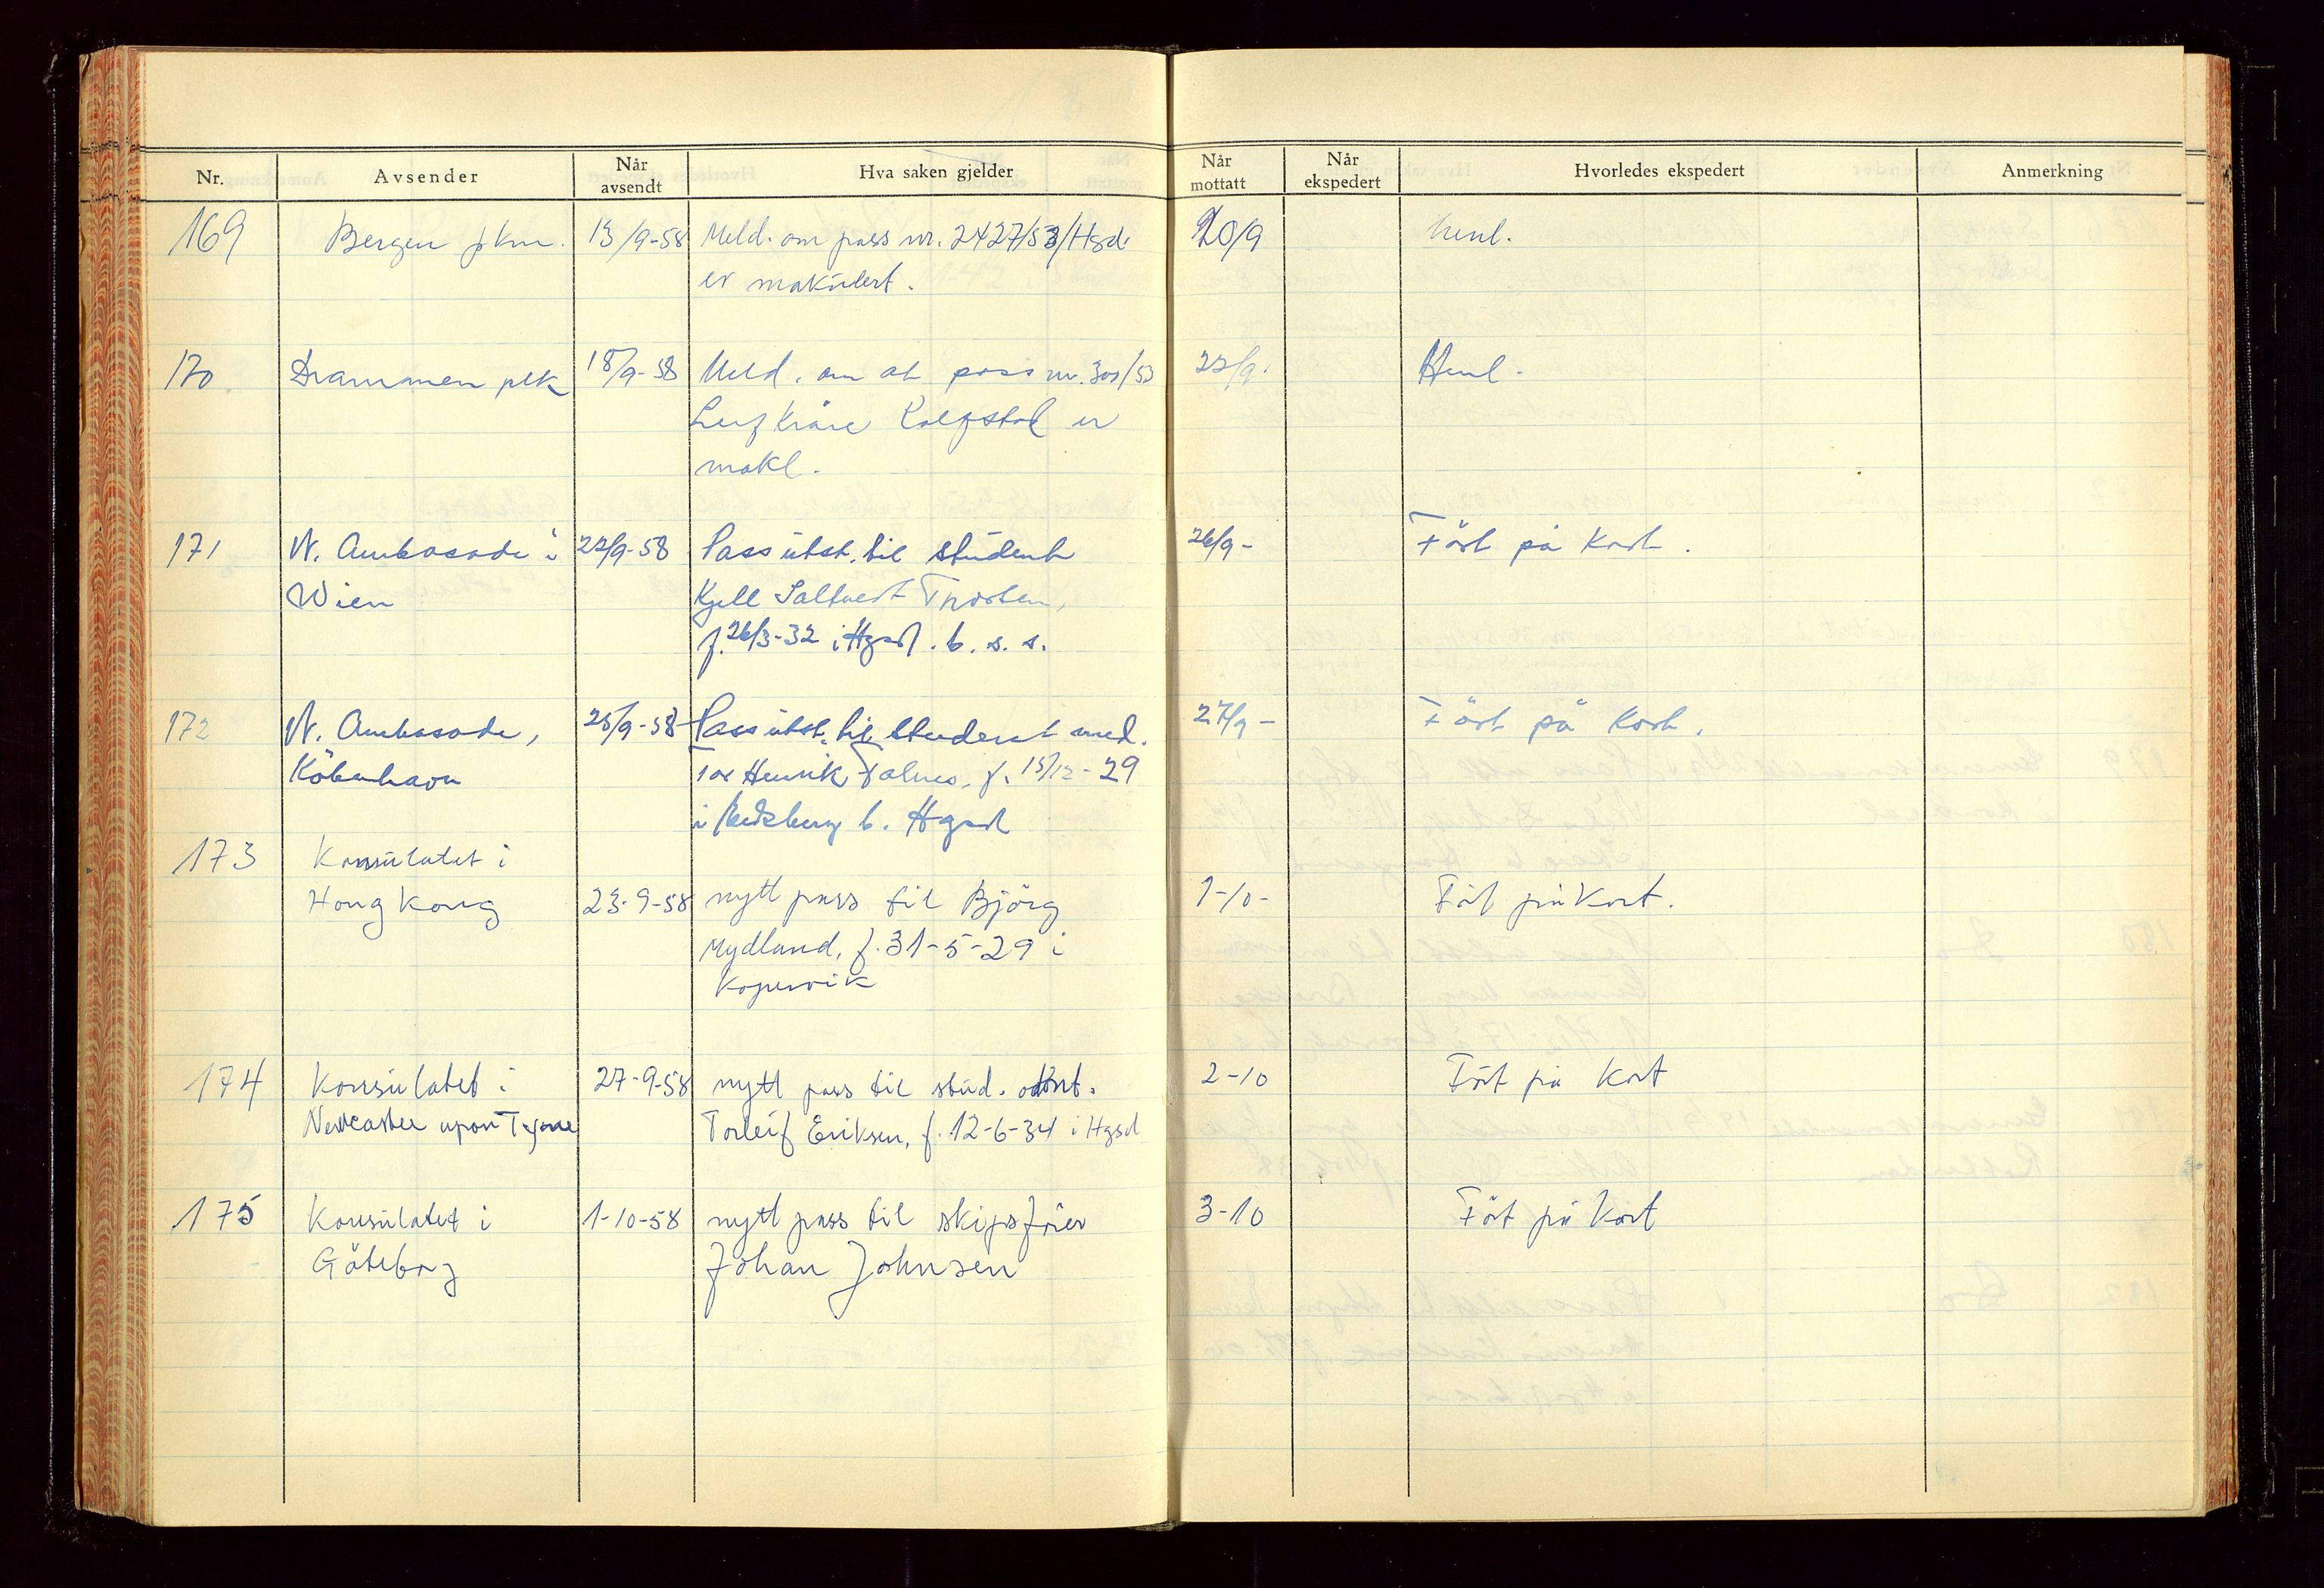 Nr. Avsender Når avsendt Hva saken gjelder Når mottatt Når ekspedert Hvorledes ekspedert Anmerkning
169 Bergen pkm. 13/9-58 Meld. om pass nr. 2427/53/Hgsd. 20/9 henl.
er makulert.
170 Drammen plk 18/9-58 Meld. om at pass nr. 305/53 22/9. Henl.
Kåre er
makl.
171 N. Ambasade i 22/9-58 Pass utst. til student 26/9- Fört på Kort.
Wien Kjell Saltvedt
f. 26/3-32 i Hgsd. b. s. s.
172 N. Ambasade, 25/9-58 Pass utst. til student med. 27/9- Fört på Kort.
Köbenhavn Tor Henrik Falnes, f. 15/12-29
i b. Hgsd
173 Konsulatet i
Hong Kong 23-9-58 nytt pass til Björg 1-10- Fört på Kort.
Mydland, f. 31-5-29 i
Kopervik
174 Konsulatet i 27-9-58 nytt pass til stud. odont. 2-10 Fört på Kort
Newcastle upon Tyne Torleif Eriksen, f. 12-6-34 i Hgsd
175 Konsulatet i 1-10-58 nytt pass til skipsförer 3-10 Fört på Kort
Göteborg Johan Johnsen